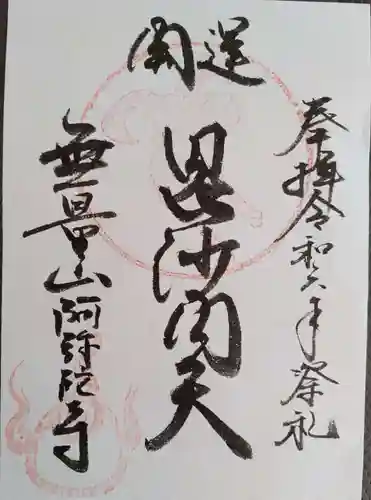 奉拝令和六年祭礼
開運
毘沙門天
無量山阿弥陀寺